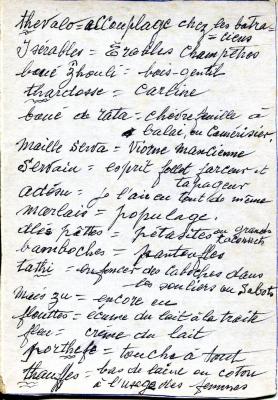 thevalo = accouplage chez les batra-
= ciens
Isérables = Erables Champêtres
boué Zhouli = bois-gentil
thardosse = carline
boué de rata = chèvrefeuille à
balai, ou Camérisier
Maille Serva = Viorne Mancienne
Servain = esprit follet farceur et
tapageur
adésu = je l'ai eu tout de même
Marlais = populage.
dlès pêttes = pétasites ou grands
taconnets
bamboches = pantoufles
tathi = enfoncer des taboches dans
les souliers ou Sabots
mais zu = encore eu
flouttes = écume du lait à la traite
fleu = crème du lait
porthefé = touche à tout
thauffes = bas de laine ou coton
à l'usage des femmes